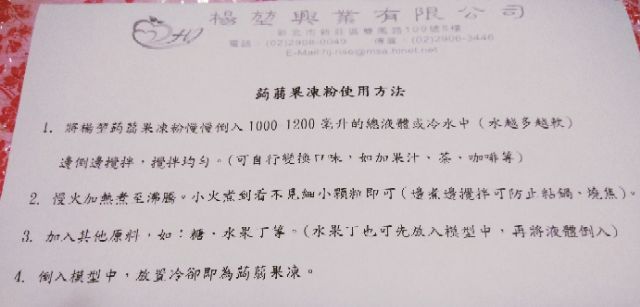 楊堃興業有限公司
新北市新莊區雙鳳路109號5樓
電話：(02)2908-0049 傳真：(02)2906-3446
E-Mail:hj.rise@msa.hinet.net
蒟蒻果凍粉使用方法
1. 將楊堃蒟蒻果凍粉慢慢倒入1000-1200毫升的總液體或冷水中（水越多越軟）
邊倒邊攪拌，攪拌均勻。(可自行變換口味，如加果汁、茶、咖啡等）
2. 慢火加熱煮至沸騰。小火煮到看不見細小顆粒即可（邊煮邊攪拌可防止黏鍋、燒焦）。
3. 加入其他原料，如：糖、水果丁等。（水果丁也可先放入模型中，再將液體倒入）
4. 倒入模型中，放置冷卻即為蒟蒻果凍。